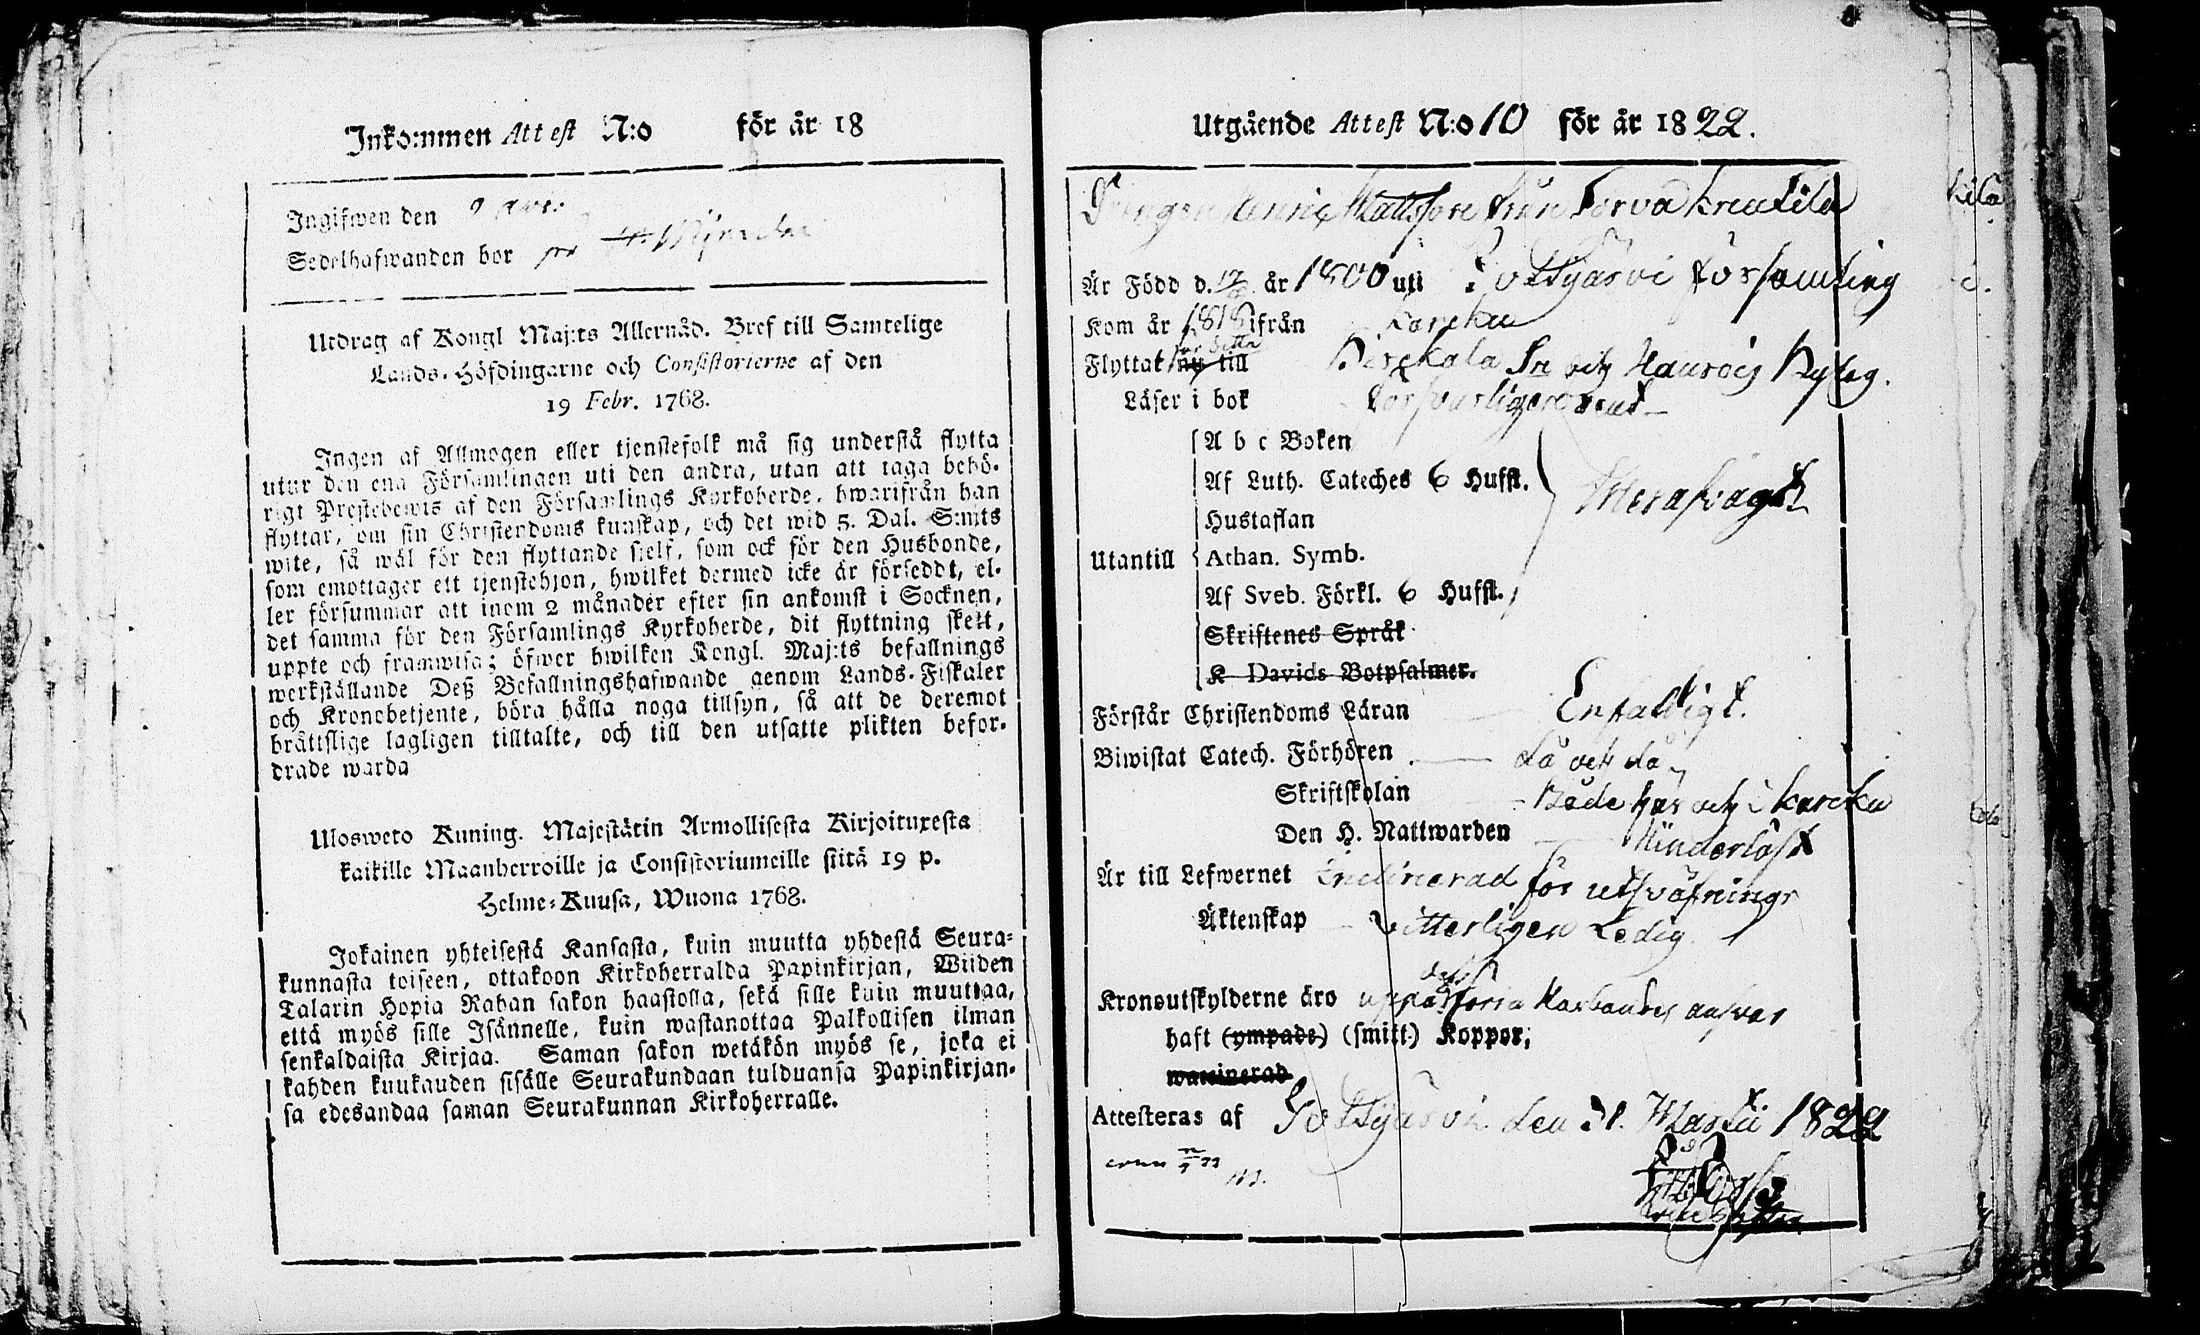 Inkommen Attest N:o för år 18
Ingifwen den 9
Sedelhafwanden bor på
Utdrag af Kongl Maj:ts Allernåd. Bref till Samtelige
Lands-Höfdingarne och Consistorierne af den
19 Febr. 1768.
Ingen af Allmogen eller tjenstefolk må sig understå flytta
utur den ena Församlingen uti den andra, utan att taga behö-
rigt Prestebewis af den Församlings Kyrkoherde, hwarifrån han
flyttar, om sin Christendoms kunskap, och det wid 5. Dal. S:mts
wite, så wäl för den flyttande sjelf, som ock för den Husbonde,
som emottager ett tjenstehjon, hwilket dermed icke är förseddt, el-
ler försummar att inom 2 månader efter sin ankomst i Socknen,
det samma för den Församlings Kyrkoherde, dit flyttning skett,
uppte och framwisa; öfwer hwilken Kongl. Maj:ts befallnings
werkställande Deß Befallningshafwande genom Lands-Fiskaler
och Kronobetjente, böra hålla noga tillsyn, så att de deremot
bråttslige lagligen tilltalte, och till den utsatte plikten befor-
drade warda
Ulosweto Kuning. Majestätin Armollisesta Kirjoituxesta
kaikille Maanherroille ja Consistoriumeille siitä 19 p.
Helme-Kuusa, Wuona 1768.
Jokainen yhteisestä Kansasta, kuin muutta yhdestä Seura-
kunnasta toiseen, ottakoon Kirkoherralda Papinkirjan, Wiiden
Talarin Hopia Rahan sakon haastolla, sekä sille kuin muuttaa,
että myös sille Isännelle, kuin wastanottaa Palkollisen ilman
senkaldaista Kirjaa. Saman sakon wetäkön myös se, joka ei
kahden kuukauden sisälle Seurakundaan tulduansa Papinkirjan-
sa edesandaa saman Seurakunnan Kirkoherralle.
Utgående Attest N:o 10 för år 1822.
Drengen Henric Mattsson från Torva Kreutila
Är Född d. år 1800 uti Pottsjärvi församling
Kom år 1818 ifrån Kareku
Flyttat nu till Sn och Haurois Byelag.
Läser i bok försvarligen rent
A b c Boken
Af Luth. Cateches 6 Hufst.
Hustaflan
Utantill Athan. Symb.
Af Sveb. Förkl. 6 Hufst.
Skriftenes Språk
K Davids Botpsalmer.
Förstår Christendoms Läran Enfaldigt.
Biwistat Catech. Förhören då och då
Skriftskolan Både här och i Kareku
Den H. Nattwarden
Är till Lefwernet Inclinerad för utsväfningr
Äktenskap Vitterligen Ledig
Kronoutskylderne äro ansvar
haft (ympade) (smitt.) Koppor;
waccinerad
Attesteras af Pottsjärvi den 31. Martii 1822